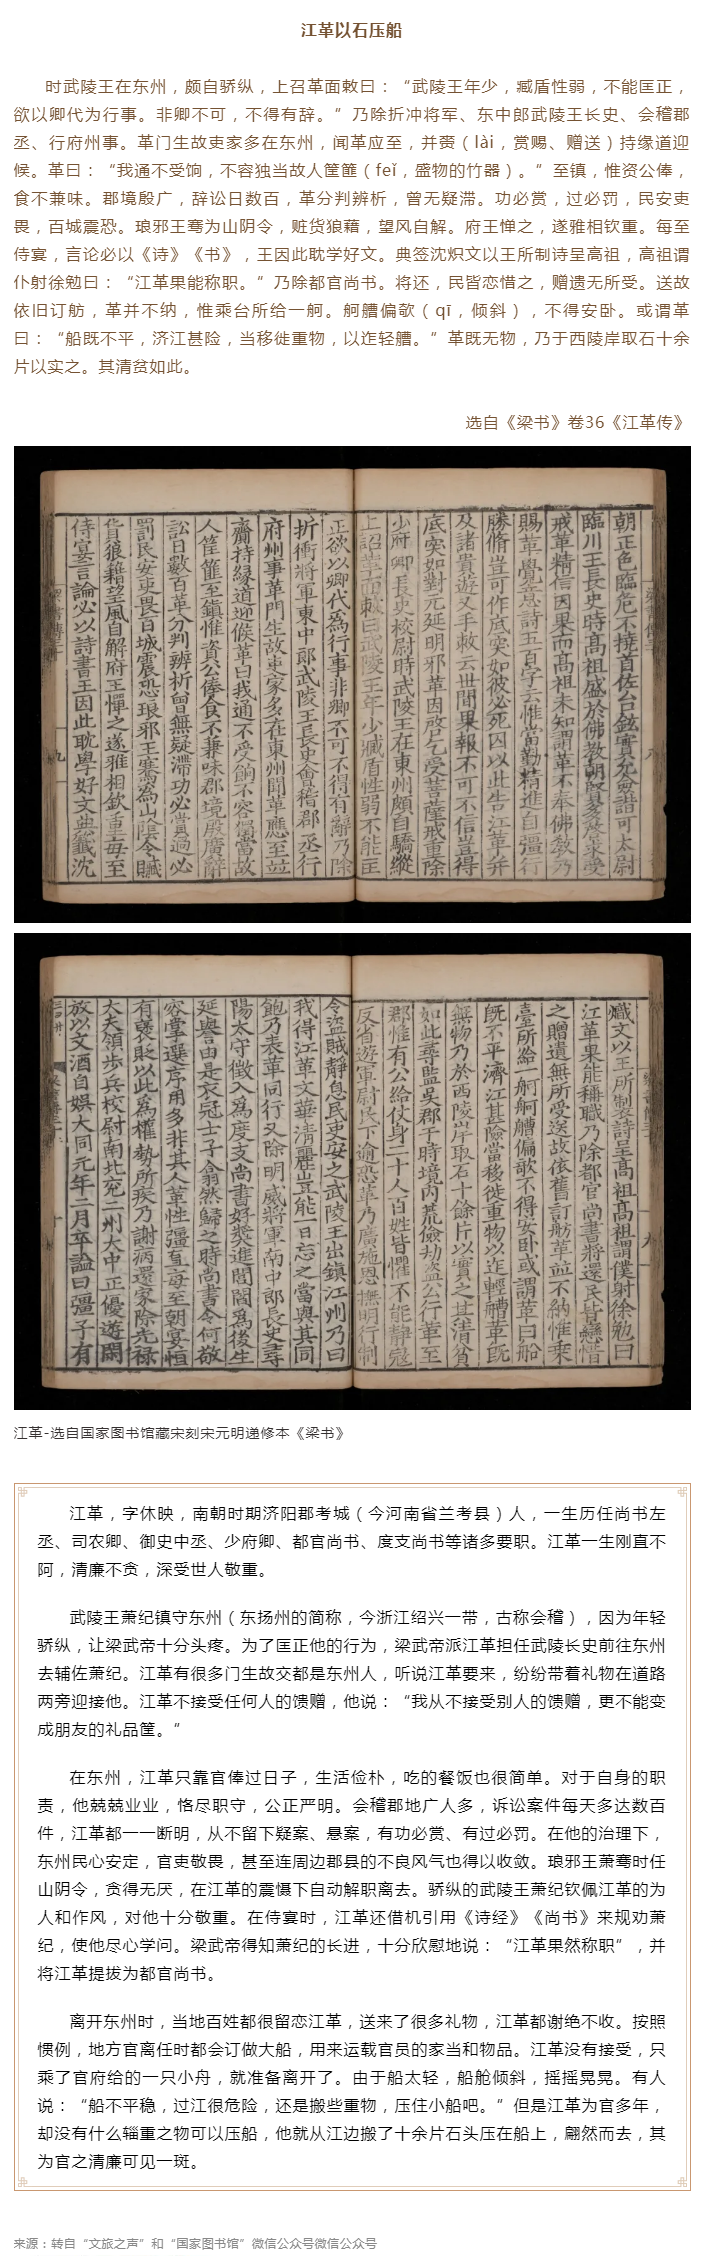 江革以石压船
时武陵王在东州，颇自骄纵，上召革面敕曰：“武陵王年少，臧盾性弱，不能匡正，
欲以卿代为行事。非卿不可，不得有辞。”乃除折冲将军、东中郎武陵王长史、会稽郡
丞、行府州事。革门生故吏家多在东州，闻革应至，并赍（lài，赏赐、赠送）持缘道迎
候。革曰：“我通不受饷，不容独当故人筐篚（feǐ，盛物的竹器）。”至镇，惟资公俸，
食不兼味。郡境殷广，辞讼日数百，革分判辨析，曾无疑滞。功必赏，过必罚，民安吏
畏，百城震恐。琅邪王骞为山阴令，赃货狼藉，望风自解。府王惮之，遂雅相钦重。每至
侍宴，言论必以《诗》《书》，王因此耽学好文。典签沈炽文以王所制诗呈高祖，高祖谓
仆射徐勉曰：“江革果能称职。”乃除都官尚书。将还，民皆恋惜之，赠遗无所受。送故
依旧订舫，革并不纳，惟乘台所给一舸。舸艚偏欹（qī，倾斜），不得安卧。或谓革
曰：“船既不平，济江甚险，当移徙重物，以迮轻艚。”革既无物，乃于西陵岸取石十余
片以实之。其清贫如此。
选自《梁书》卷36《江革传》
朝正色臨危不撓首佐台鉉實允僉諧可太尉
臨川王長史時高祖盛於佛教朝賢多啓求受
戒革精信因果而高祖未知謂革不奉佛教乃
賜革覺意詩五百字云惟當勤精進自彊行
勝脩豈可作底突如彼必死囚以此告江革并
及諸貴遊又手敕云世間果報不可不信豈得
底突如對元延明邪革因啓乞受菩薩戒重除
少府卿長史校尉時武陵王在東州頗自驕縱
上詔革面敕曰武陵王年少臧盾性弱不能匡
正欲以卿代爲行事非卿不可不得有辭乃除
折衝將軍東中郎武陵王長史會稽郡丞行
府州事革門生故吏家多在東州聞革應至並
齎持緣道迎候革曰我通不受餉不容獨當故
人筐篚至鎮惟資公俸食不兼味郡境殷廣辭
訟日數百革分判辨析曾無疑滯功必賞過必
罰民安吏畏百城震恐琅邪王騫爲山陰令贓
貨狼藉望風自解府王憚之遂雅相欽重每至
侍宴言論必以詩書王因此耽學好文典籤沈
熾文以王所製詩呈高祖高祖謂僕射徐勉曰
江革果能稱職乃除都官尚書將還民皆戀惜
之贈遺無所受送故依舊訂舫革並不納惟乗
臺所給一舸舸艚偏欹不得安卧或謂革曰船
旣不平濟江甚險當移徙重物以迮輕艚革旣
無物乃於西陵岸取石十餘片以實之其清貧
如此尋監吳郡于時境内荒儉劫盜公行革至
郡惟有公給仗身二十人百姓皆懼不能靜寇
反省遊軍尉民下逾恐革乃廣施恩撫明行制
令盜賊靜息民吏安之武陵王出鎮江州乃曰
我得江革文華清麗豈能一日忘之當與其同
飽乃表革同行又除明威將軍南中郎長史尋
陽太守徴入爲度支尚書好奬進閭閻爲後生
延譽由是衣冠士子翕然歸之時尚書令何敬
容掌選序用多非其人革性彊直每至朝宴恒
有襃貶以此爲權勢所疾乃謝病還家除光禄
大夫領步兵校尉南北兖二州大中正優遊閑
放以文酒自娛大同元年二月卒謚曰彊子有
江革-选自国家图书馆藏宋刻宋元明递修本《梁书》
江革，字休映，南朝时期济阳郡考城（今河南省兰考县）人，一生历任尚书左
丞、司农卿、御史中丞、少府卿、都官尚书、度支尚书等诸多要职。江革一生刚直不
阿，清廉不贪，深受世人敬重。
武陵王萧纪镇守东州（东扬州的简称，今浙江绍兴一带，古称会稽），因为年轻
骄纵，让梁武帝十分头疼。为了匡正他的行为，梁武帝派江革担任武陵长史前往东州
去辅佐萧纪。江革有很多门生故交都是东州人，听说江革要来，纷纷带着礼物在道路
两旁迎接他。江革不接受任何人的馈赠，他说：“我从不接受别人的馈赠，更不能变
成朋友的礼品筐。”
在东州，江革只靠官俸过日子，生活俭朴，吃的餐饭也很简单。对于自身的职
责，他兢兢业业，恪尽职守，公正严明。会稽郡地广人多，诉讼案件每天多达数百
件，江革都一一断明，从不留下疑案、悬案，有功必赏、有过必罚。在他的治理下，
东州民心安定，官吏敬畏，甚至连周边郡县的不良风气也得以收敛。琅邪王萧骞时任
山阴令，贪得无厌，在江革的震慑下自动解职离去。骄纵的武陵王萧纪钦佩江革的为
人和作风，对他十分敬重。在侍宴时，江革还借机引用《诗经》《尚书》来规劝萧
纪，使他尽心学问。梁武帝得知萧纪的长进，十分欣慰地说：“江革果然称职”，并
将江革提拔为都官尚书。
离开东州时，当地百姓都很留恋江革，送来了很多礼物，江革都谢绝不收。按照
惯例，地方官离任时都会订做大船，用来运载官员的家当和物品。江革没有接受，只
乘了官府给的一只小舟，就准备离开了。由于船太轻，船舱倾斜，摇摇晃晃。有人
说：“船不平稳，过江很危险，还是搬些重物，压住小船吧。”但是江革为官多年，
却没有什么辎重之物可以压船，他就从江边搬了十余片石头压在船上，翩然而去，其
为官之清廉可见一斑。
来源：转自“文旅之声”和“国家图书馆”微信公众号微信公众号